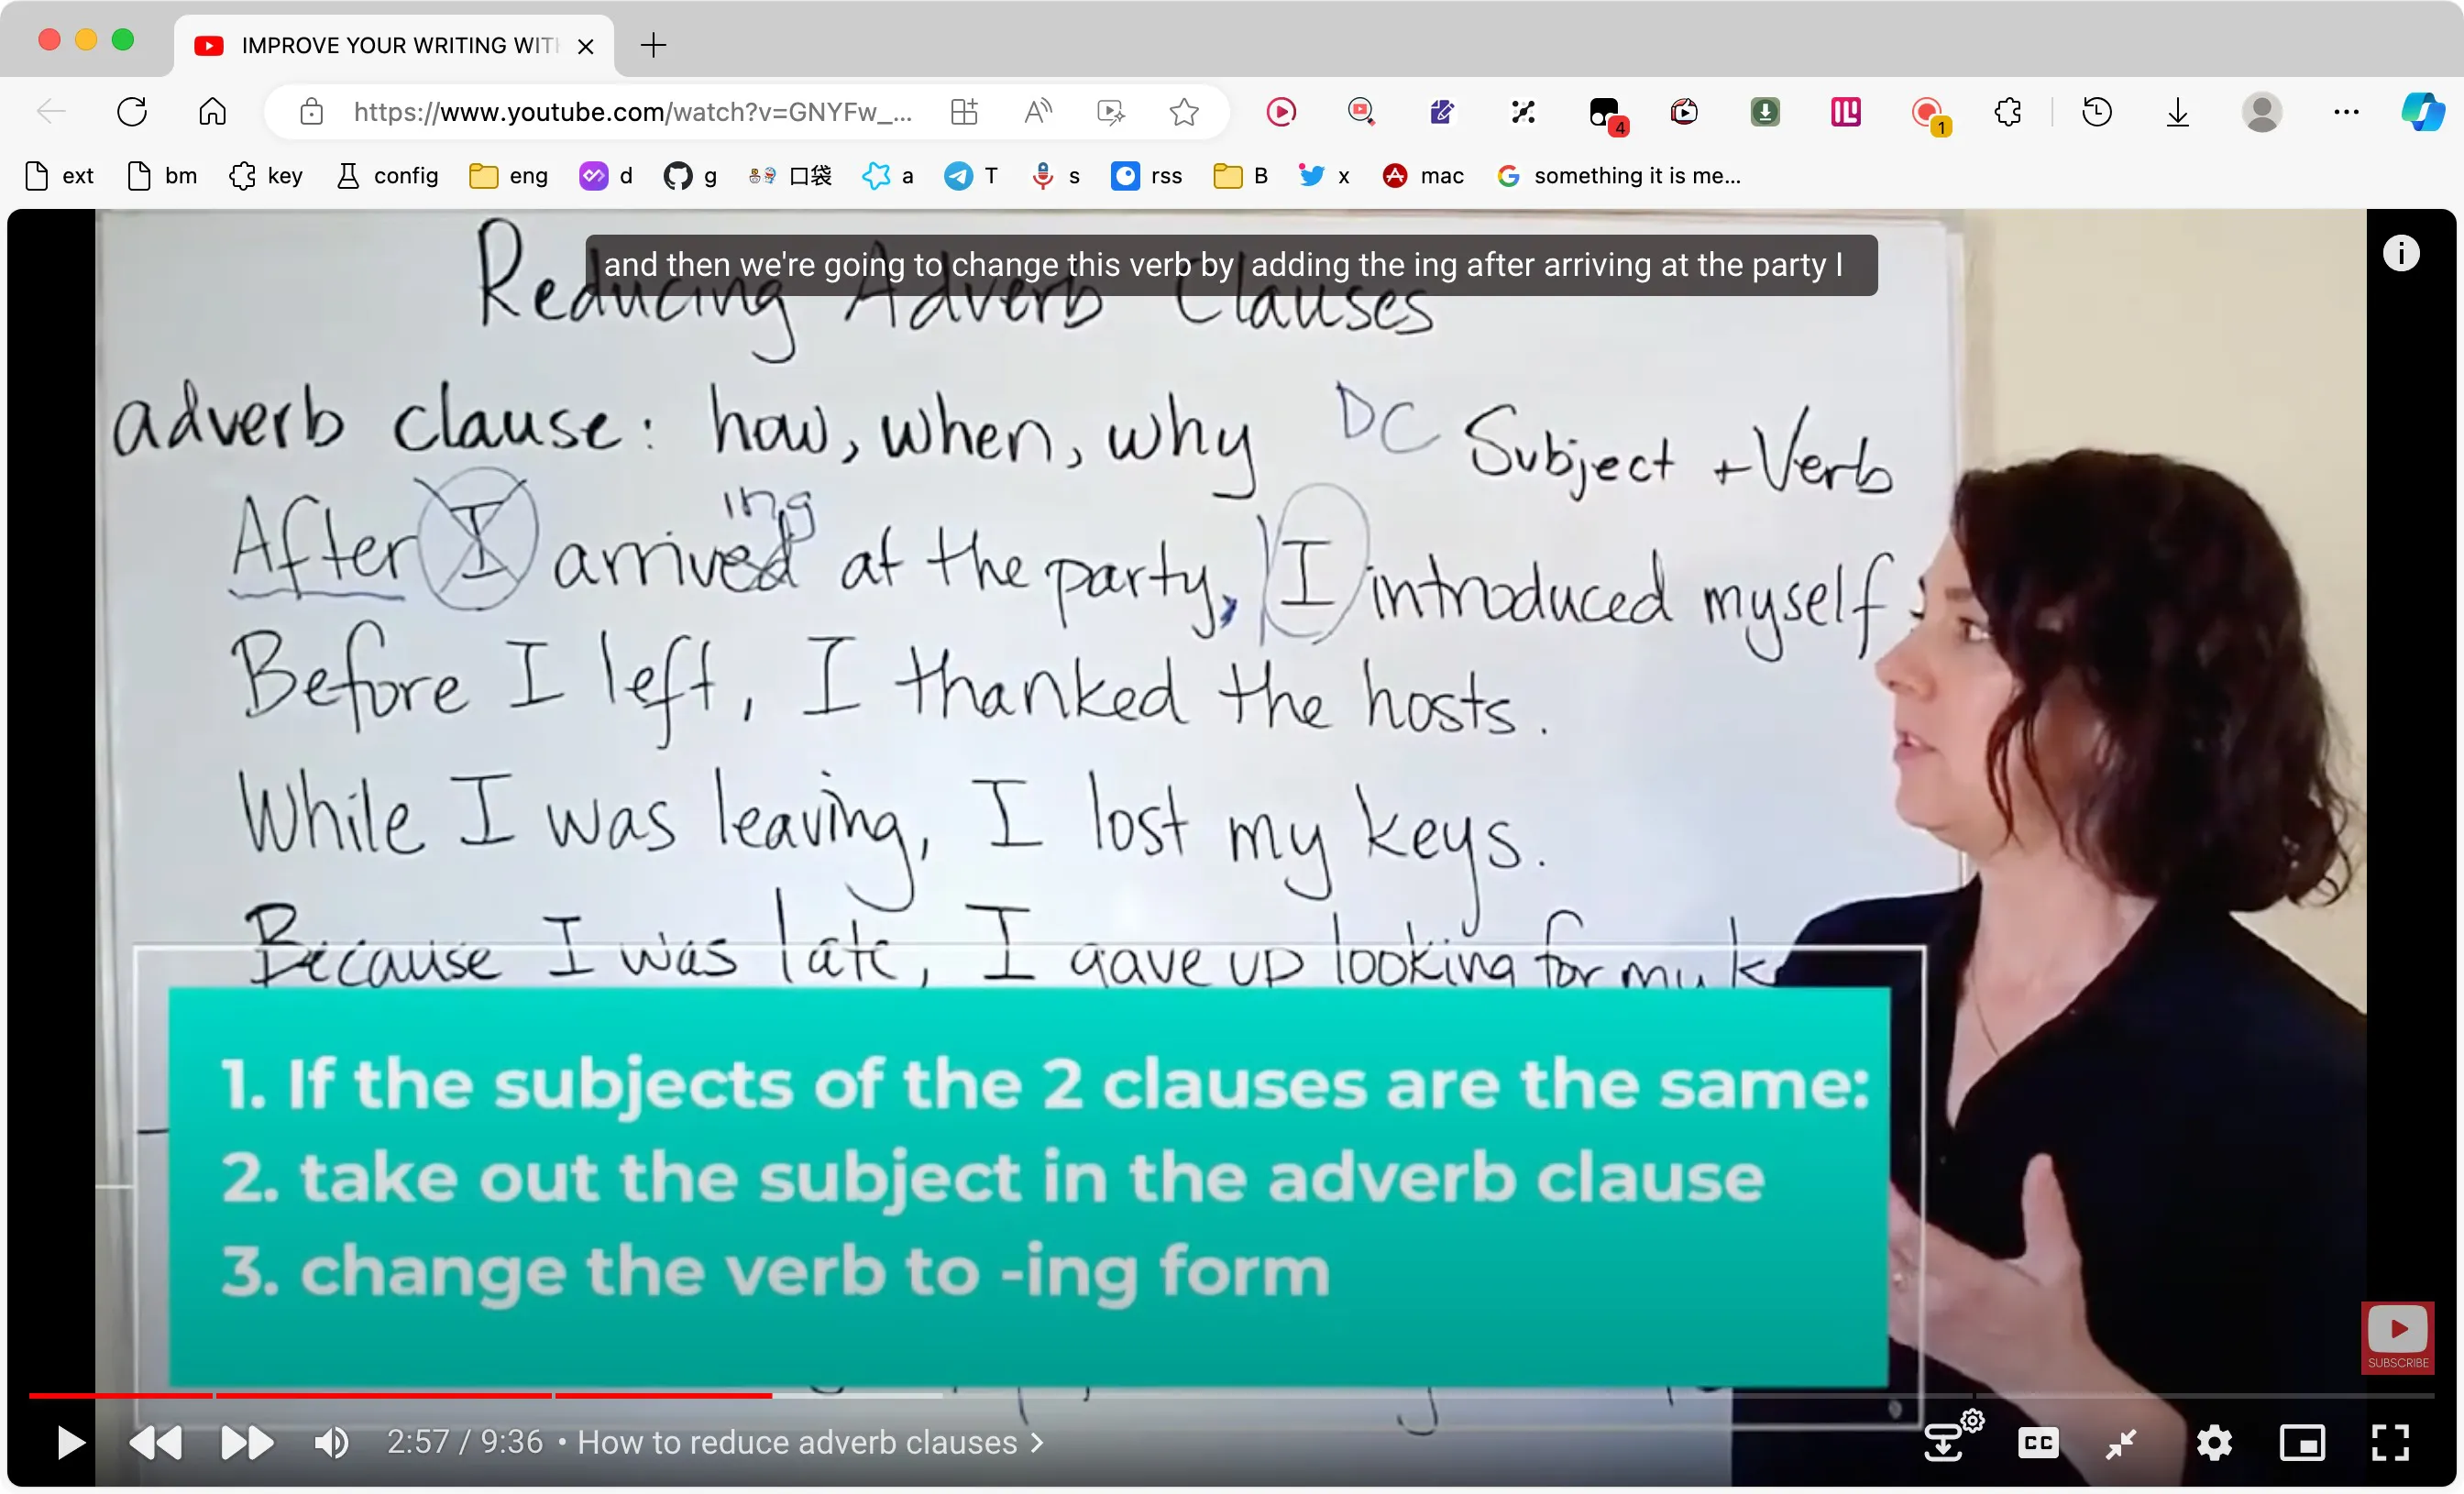 IMPROVE YOUR WRITING WITH
https://www.youtube.com/watch?v=GNYFw_...
4
1
ext bm key config eng d g 口袋 a T s rss B x mac something it is me...
and then we're going to change this verb by adding the ing after arriving at the party I
Reducing Adverb Clauses
adverb clause: how, when, why DC Subject + Verb
ing
After I arrived at the party, I introduced myself
Before I left, I thanked the hosts.
While I was leaving, I lost my keys.
Because I was late, I gave up looking for my
1. If the subjects of the 2 clauses are the same:
2. take out the subject in the adverb clause
3. change the verb to -ing form
SUBSCRIBE
2:57 / 9:36 • How to reduce adverb clauses
CC